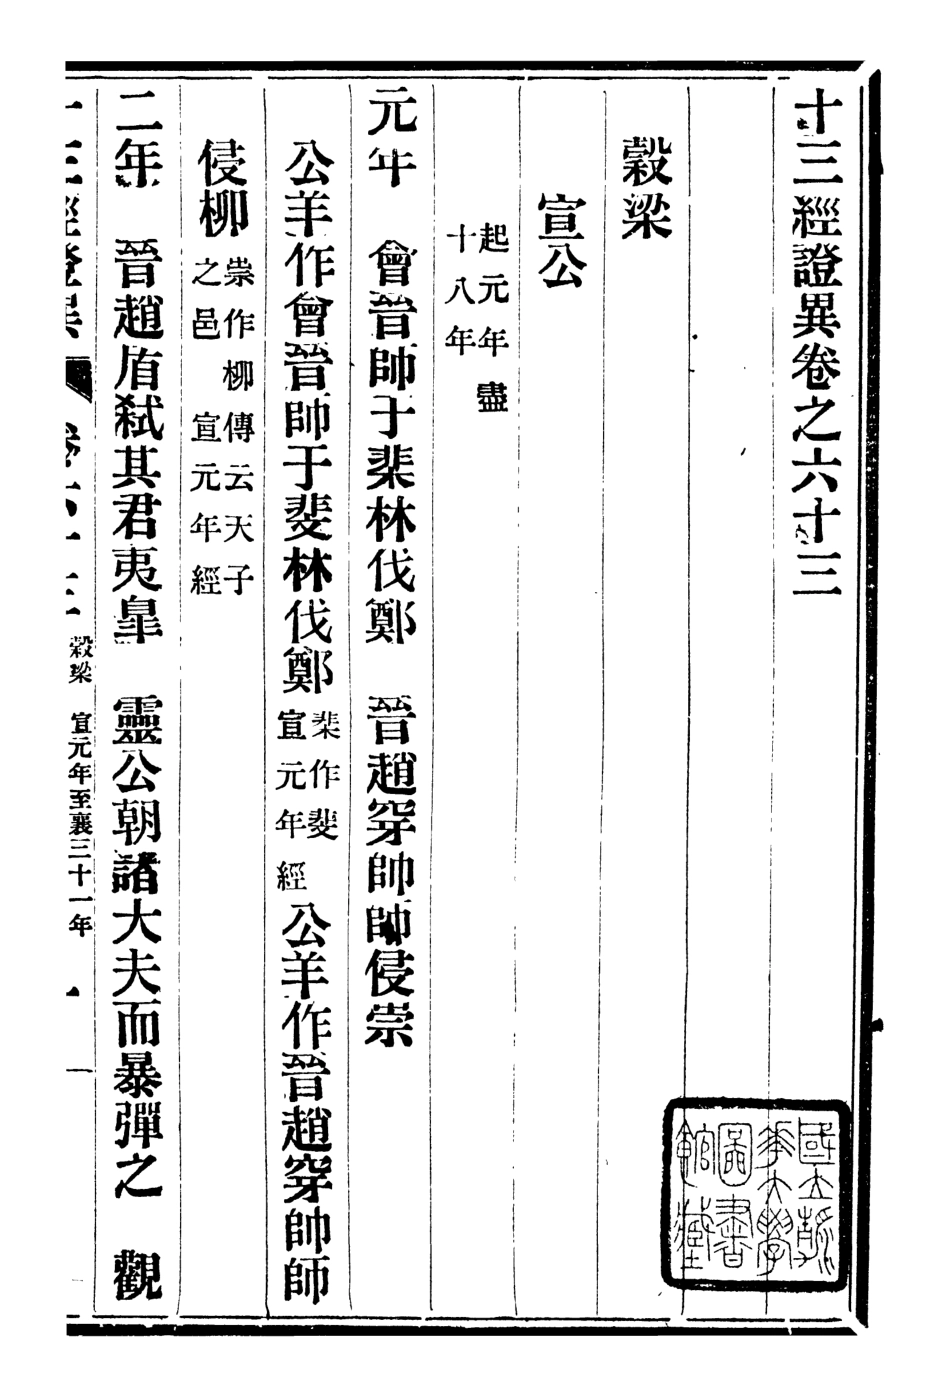 十三經證異卷之六十三
穀梁
宣公
起元年盡
十八年
元年　會晉師于棐林伐鄭　晉趙穿帥師侵崇
公羊作會晉師于斐林伐鄭棐作斐宣元年經公羊作晉趙穿帥師
侵柳崇作柳傳云天子之邑宣元年經
二年　晉趙盾弒其君夷皐　靈公朝諸大夫而暴彈之　觀
十三經證異　卷六十三　穀梁　宣元年至襄三十一年　一
國立清華大學圖書館藏